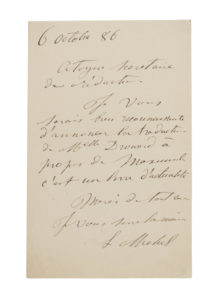 6 octobre 86
Citoyen secrétaire
de rédaction
Je vous
serais bien reconnaissante
d'annoncer la traduction
de Melle Drouard à
propos de
c'est un livre d'actualité
Merci de tout cœur
Je vous serre la main
L Michel